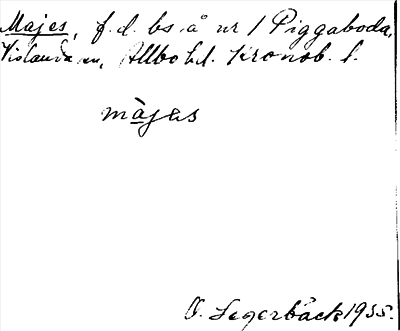 Majes, f. d. bs å nr 1 Piggaboda,
Vislanda sn, Allbo hd. Kronob. l.
màjas
O. Segerbäck 1935.